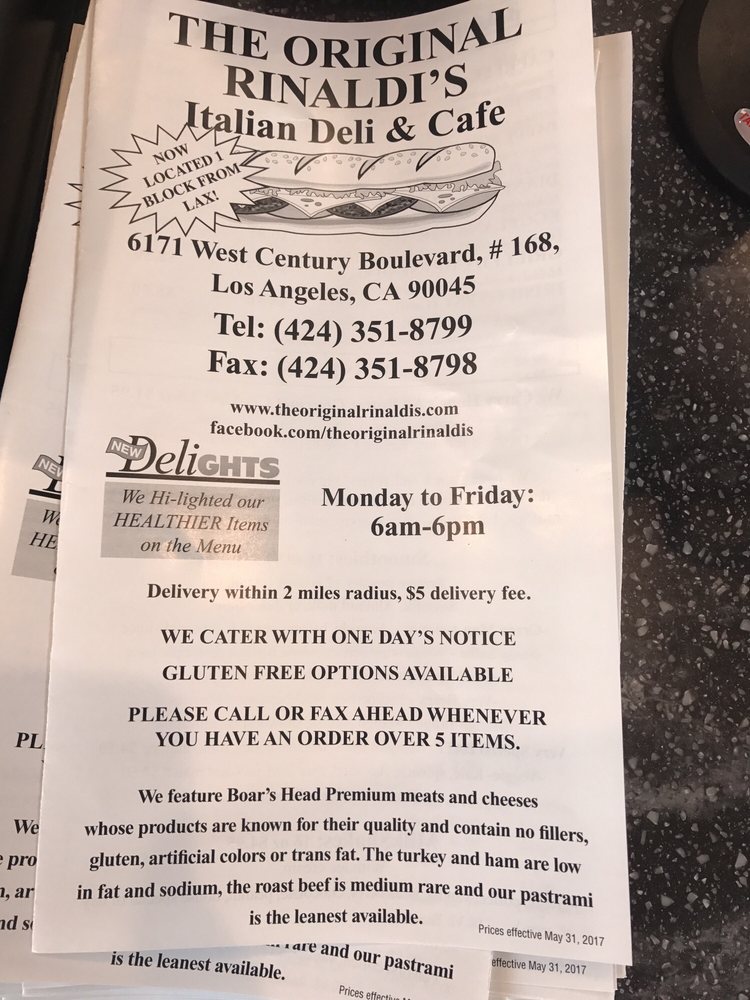 THE ORIGINAL
RINALDI'S
Italian Deli & Cafe
NOW
LOCATED 1
BLOCK FROM
LAX!
6171 West Century Boulevard, # 168,
Los Angeles, CA 90045
Tel: (424) 351-8799
Fax: (424) 351-8798
www.theoriginalrinaldis.com
facebook.com/theoriginalrinaldis
NEW
DeliGHTS
We Hi-lighted our
HEALTHIER Items
on the Menu
Monday to Friday:
6am-6pm
Delivery within 2 miles radius, $5 delivery fee.
WE CATER WITH ONE DAY'S NOTICE
GLUTEN FREE OPTIONS AVAILABLE
PLEASE CALL OR FAX AHEAD WHENEVER
YOU HAVE AN ORDER OVER 5 ITEMS.
We feature Boar's Head Premium meats and cheeses
whose products are known for their quality and contain no fillers,
gluten, artificial colors or trans fat. The turkey and ham are low
in fat and sodium, the roast beef is medium rare and our pastrami
is the leanest available.
Prices effective May 31, 2017
NEW
We
HE
PL
We
pro
n, ar
nd s
rare and our pastrami
is the leanest available.
effective May 31, 2017
Prices effective